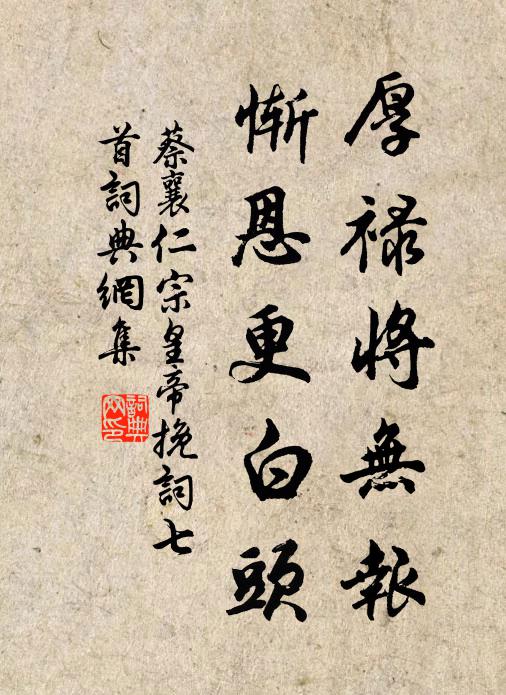 厚祿將無報
慚恩更白頭
蔡襄仁宗皇帝挽詞七
首詞典網集
詞典
网印